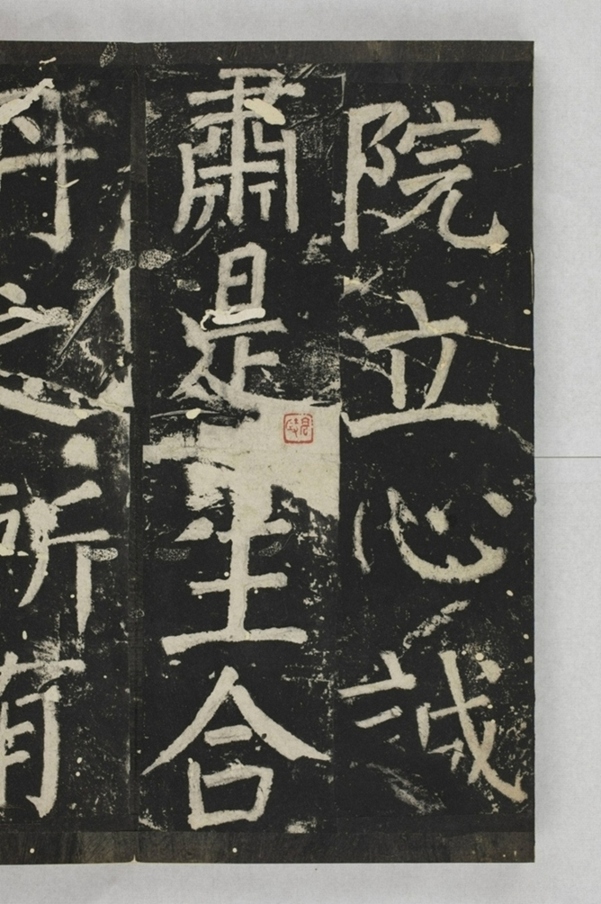 院立心誠
肅是生合
之所有